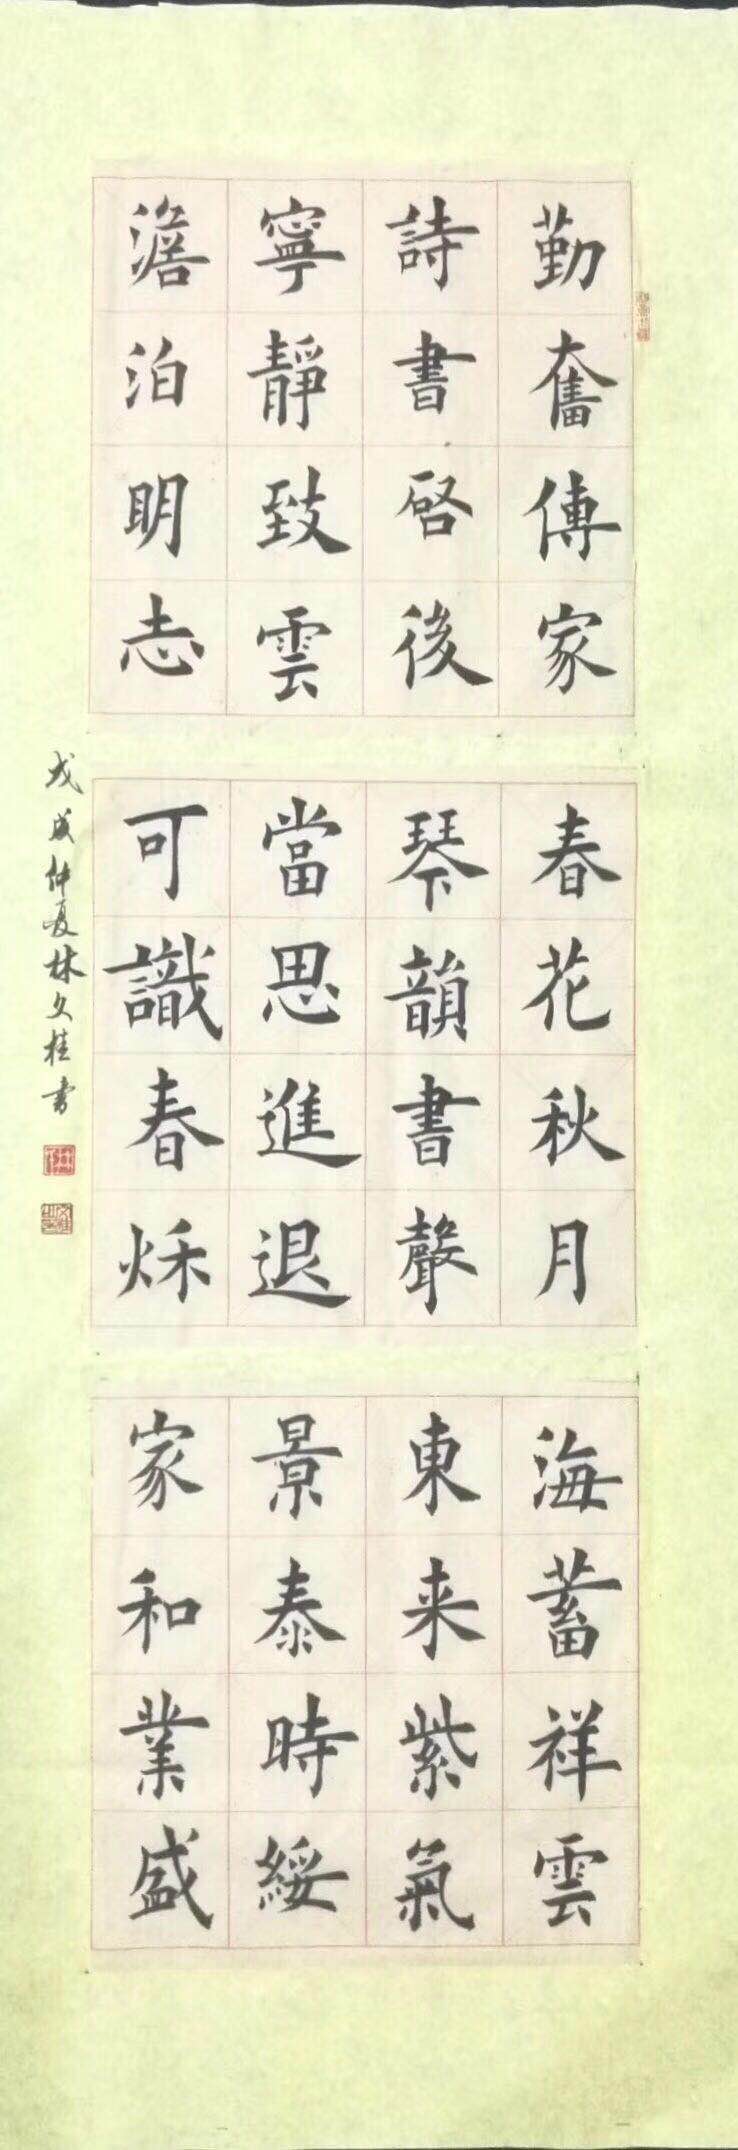 勤奮傳家
詩書啓後
寧靜致雲
澹泊明志
春花秋月
琴韻書聲
當思進退
可識春秌
海蓄祥雲
東来紫氣
景泰時綏
家和業盛
戊戌仲夏林文桂書